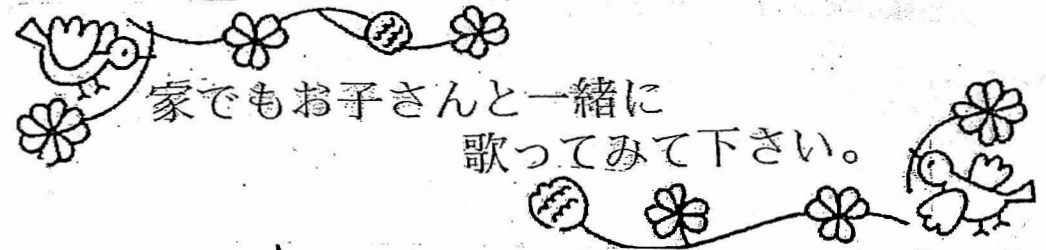 家でもお子さんと一緒に
歌ってみて下さい。